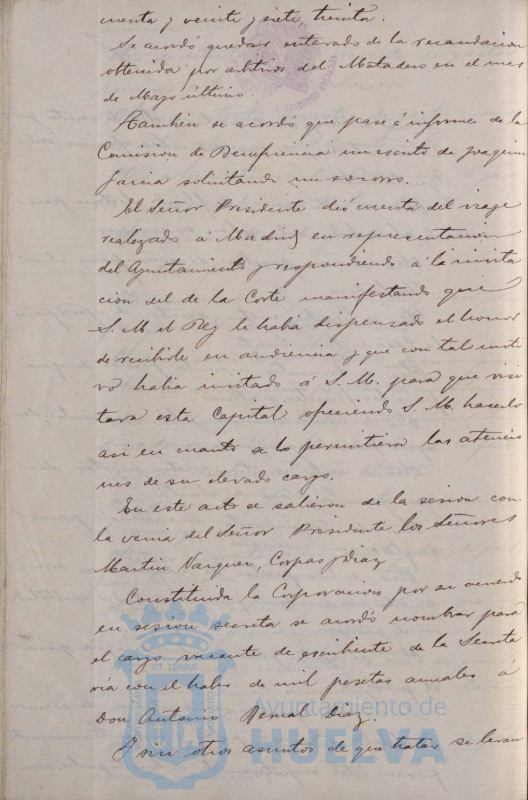 cuenta y veinte y siete, treinta.
Se acordó quedar enterado de la recaudacion
obtenida por arbitrios del Matadero en el mes
de Mayo último.
Tambien se acordó que pase á informe de la
Comision de Beneficencia un escrito de Joaquin
Garcia solicitando un socorro.
El Señor Presidente dió cuenta del viage
realizado á Madrid en representacion
del Ayuntamiento y respondiendo á la invita
cion del de la Corte manifestando que
S. M. el Rey le habia dispensado el honor
de recibirle en audiencia y que con tal moti
vo habia invitado á S. M. para que visi
tara esta Capital ofreciendo S. M. hacerlo
asi en cuanto se lo permitiera las atencio
nes de su elevado cargo.
En este acto se salieron de la sesion con
la venia del Señor Presidente los Señores
Martin Vazquez, Corpas y Diaz
Constituida la Corporacion por su acuerdo
en sesion secreta se acordó nombrar para
el cargo vacante de escribiente de la Secreta
ria con el haber de mil pesetas anuales á
Don Antonio Bernal Diaz.
Y sin otros asuntos de que tratar se levan
ET TERRÆ
Ayuntamiento de
HUELVA